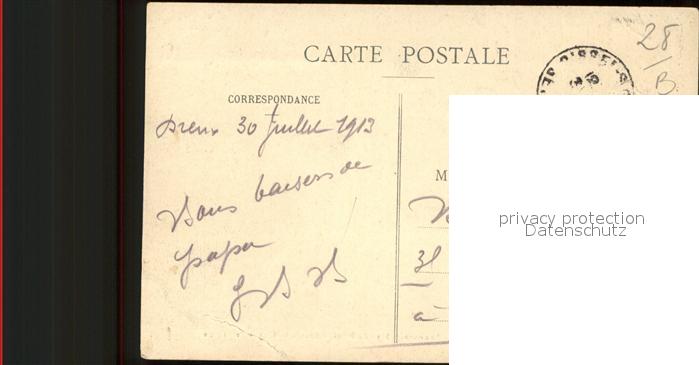 28
B
CARTE POSTALE
CORRESPONDANCE
Dreux 30 Juillet 1913
Bons baisers de
papa
M
31
à
privacy protection
Datenschutz